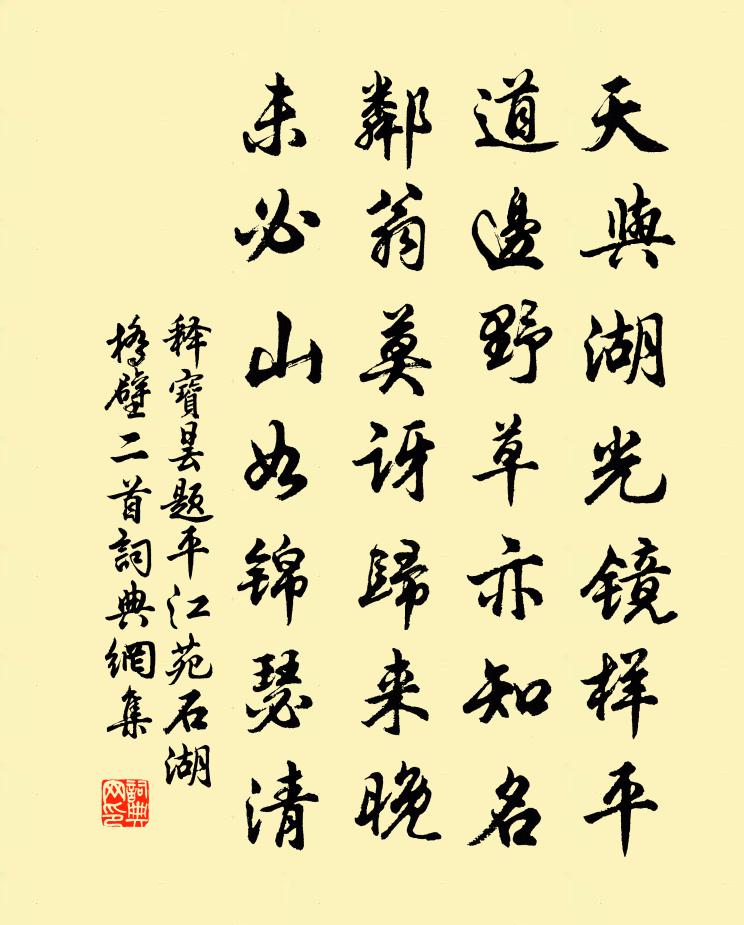 天與湖光鏡样平
道邊野草亦知名
鄰翁莫訝歸来晚
未必山如锦瑟清
释寶昙题平江苑石湖
橋壁二首詞典網集
詞典网印